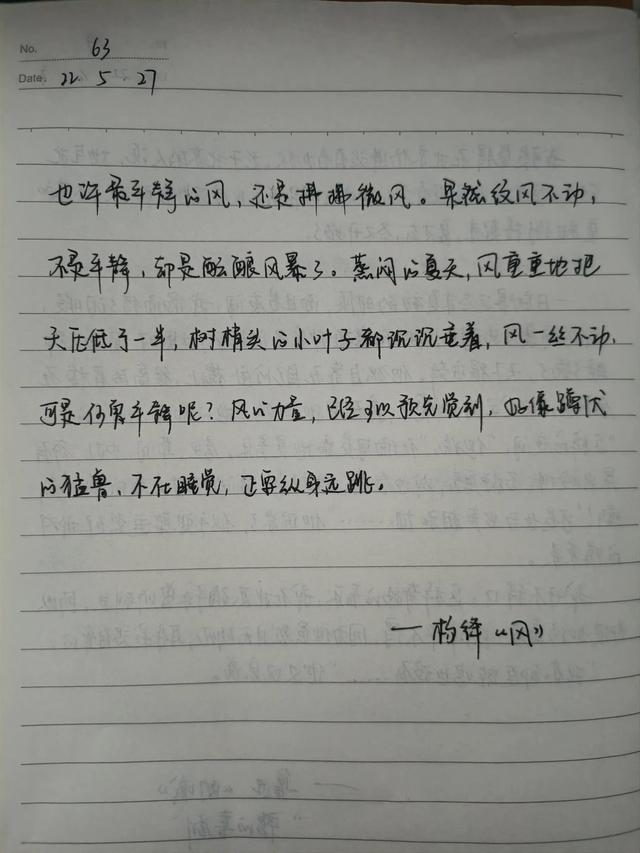 No. 63
Date. 22 . 5 . 27
也许最平静的风，还是拂拂微风。果然纹风不动，
不是平静，却是酝酿风暴了。蒸闷的夏天，风重重地把
天压低了一半，树梢头的小叶子都沉沉垂着，风一丝不动，
可是何曾平静呢？风的力量，已经可以预先觉到，好像蹲伏
的猛兽，不在睡觉，正要纵身远跳。
——杨绛《风》